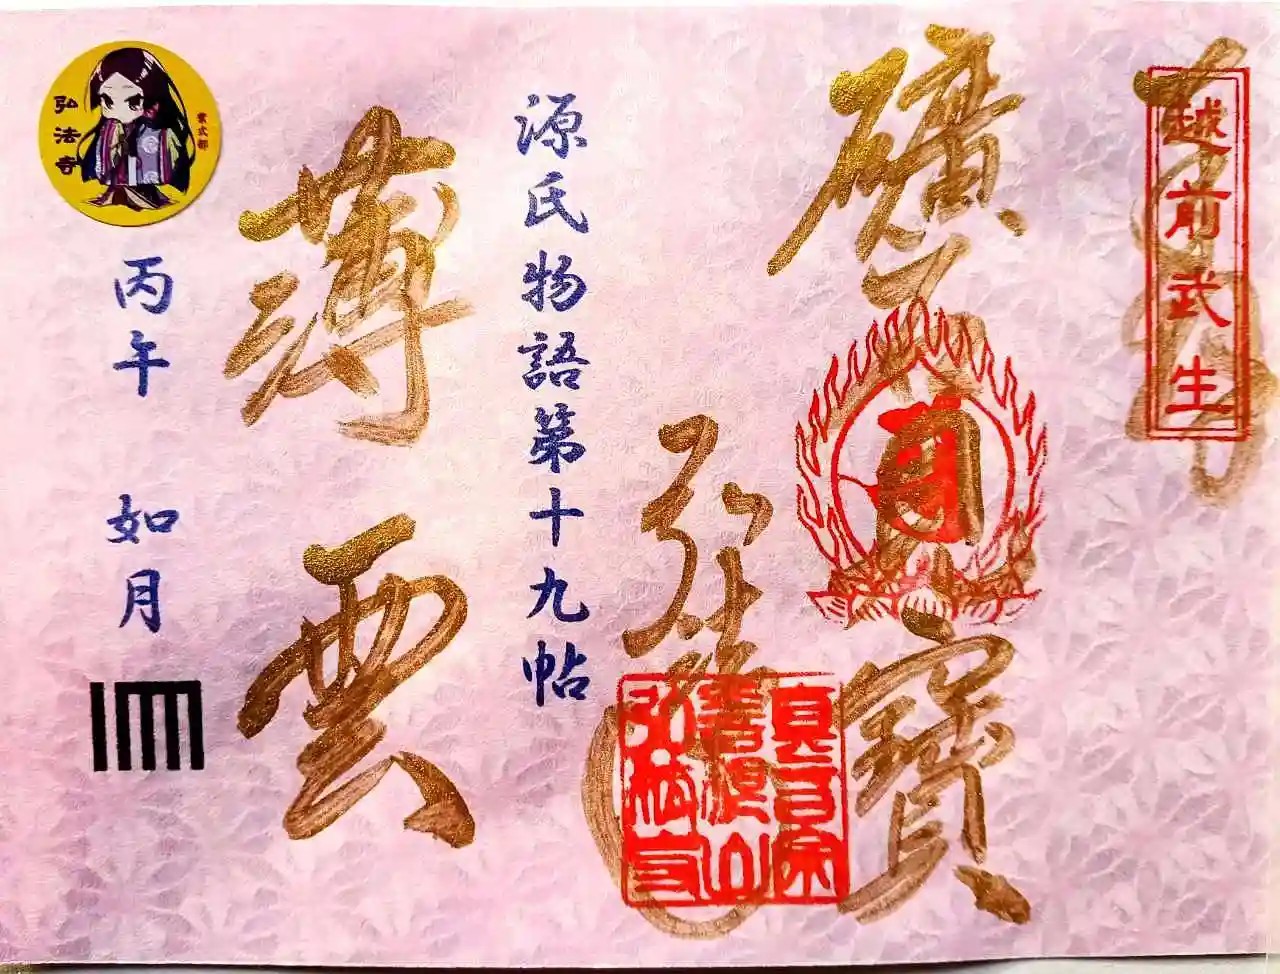 越前武生
寶
弘法寺
真言宗
弘法寺
源氏物語第十九帖
薄雲
弘法寺
紫式部
丙午 如月